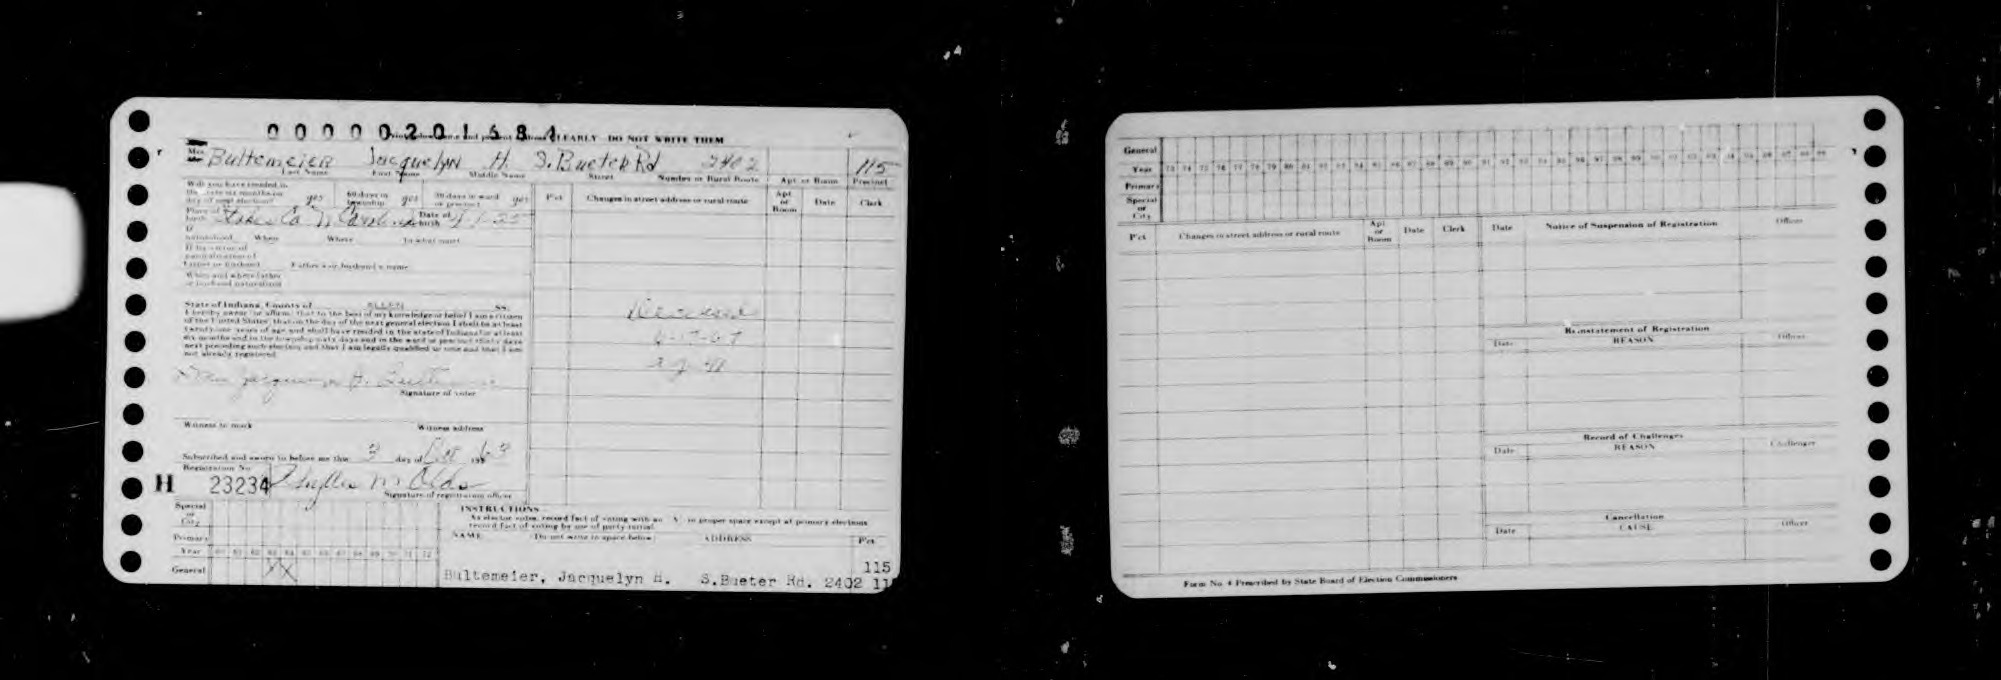 0 0 0 0 0 2 0 1 6 8 4
CLEARLY DO NOT WRITE THEM
Mrs. Bultemeier Jacquelyn H. S. Bueter Rd 2402 115
Last Name First Name Middle Name Street Number or Rural Route Apt or Room Precinct
Will you have resided in
the state six months on
day of next election? yes 60 days in township yes 30 days in ward or precinct yes
Place of birth Stokes Co. N. Carolina Date of birth
If naturalized When Where In what court
If by virtue of
naturalization of
Father or Husband Father's or husband's name
When and where father
or husband naturalized
State of Indiana, County of ALLEN SS.
I hereby swear (or affirm) that to the best of my knowledge or belief I am a citizen
of the United States; that on the day of the next general election I shall be at least
twenty-one years of age and shall have resided in the state of Indiana for at least
six months and in the township sixty days and in the ward or precinct thirty days
next preceding such election and that I am legally qualified to vote and that I am
not already registered.
Mrs Jacquelyn H.
Signature of voter
Witness to mark Witness address
Subscribed and sworn to before me this 3 day of Oct 1963
Registration No.
H 23234 Phyllis M
Signature of registration officer
P'ct Changes in street address or rural route Apt or Room Date Clerk
Deceased
6-17-67
Special or City
Primary
Year 60 61 62 63 64 65 66 67 68 69 70 71 72
General X X
INSTRUCTIONS
As elector votes, record fact of voting with an X in proper space except at primary elections
record fact of voting by use of party initial.
NAME (Do not write in space below) ADDRESS P'ct
115
Bultemeier, Jacquelyn H. S.Bueter Rd. 2402 11
General
Year 73 74 75 76 77 78 79 80 81 82 83 84 85 86 87 88 89 90 91 92 93 94 95 96 97 98 99
Primary
Special or City
P'ct Changes in street address or rural route Apt or Room Date Clerk
Date Notice of Suspension of Registration Officer
Reinstatement of Registration
Date REASON Officer
Record of Challenges
Date REASON Challenger
Cancellation
Date CAUSE Officer
Form No. 4 Prescribed by State Board of Election Commissioners